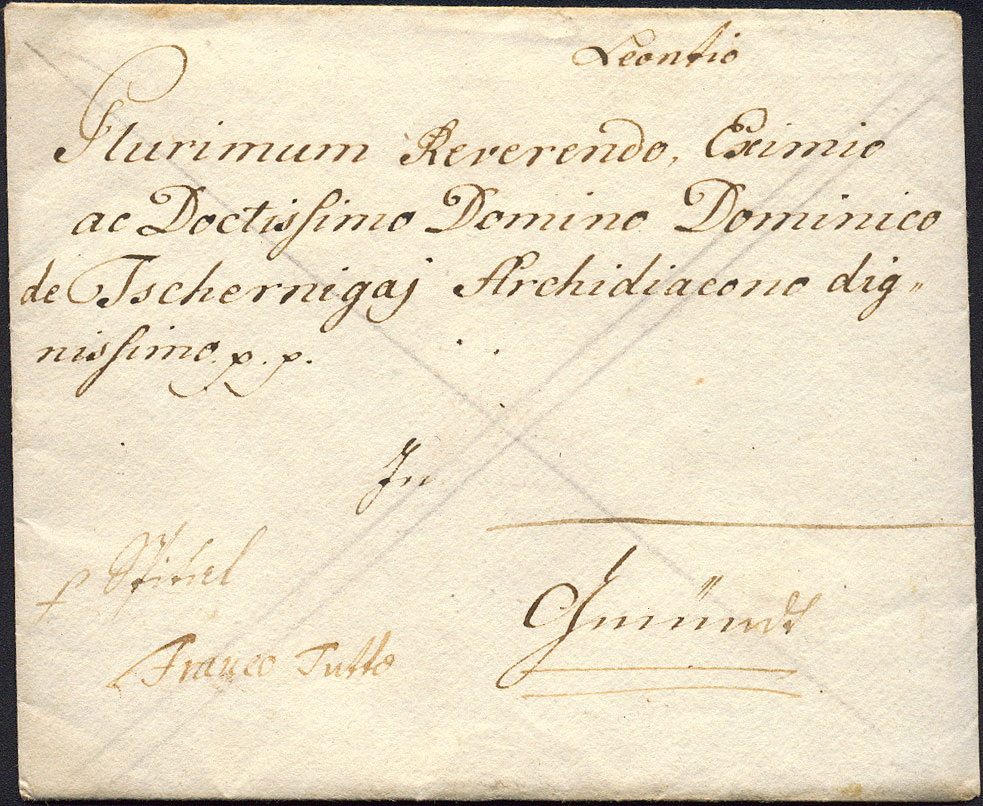 Leontio
Plurimum Reverendo, Eximio
ac Doctiſsimo Domino Dominico
de Tschernigaj Archidiacono dig„
niſsimo p. p.
In
Gmündt
p Spittal
Franco Tutto